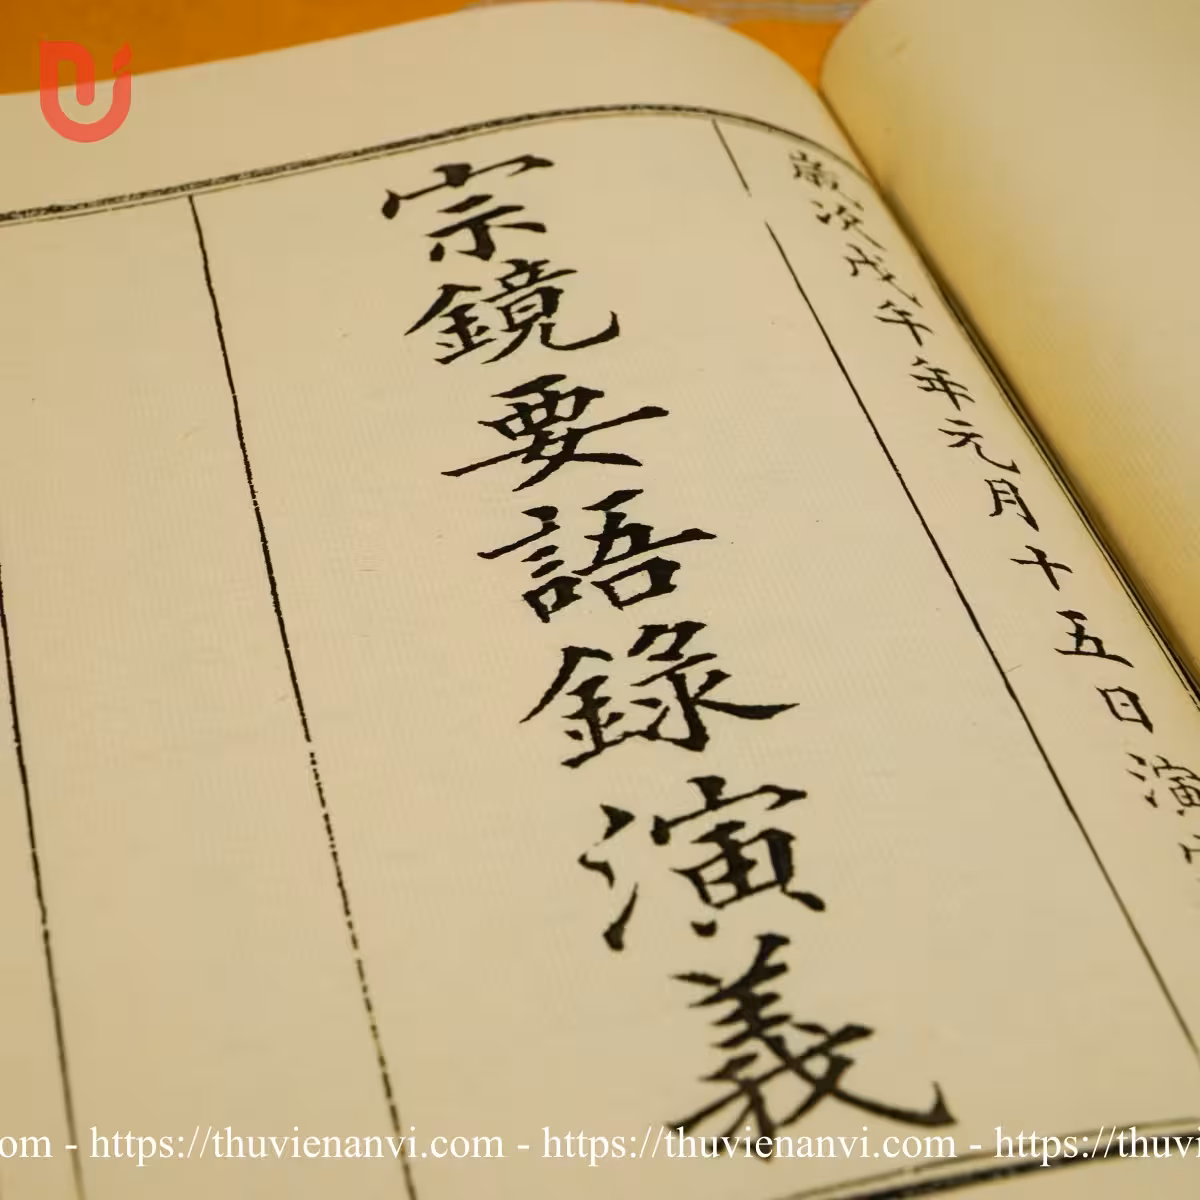 歲次戊午年元月十五日演
宗鏡要語錄演義
om - https://thuvienanvi.com - https://thuvienanvi.com - https://thuvi